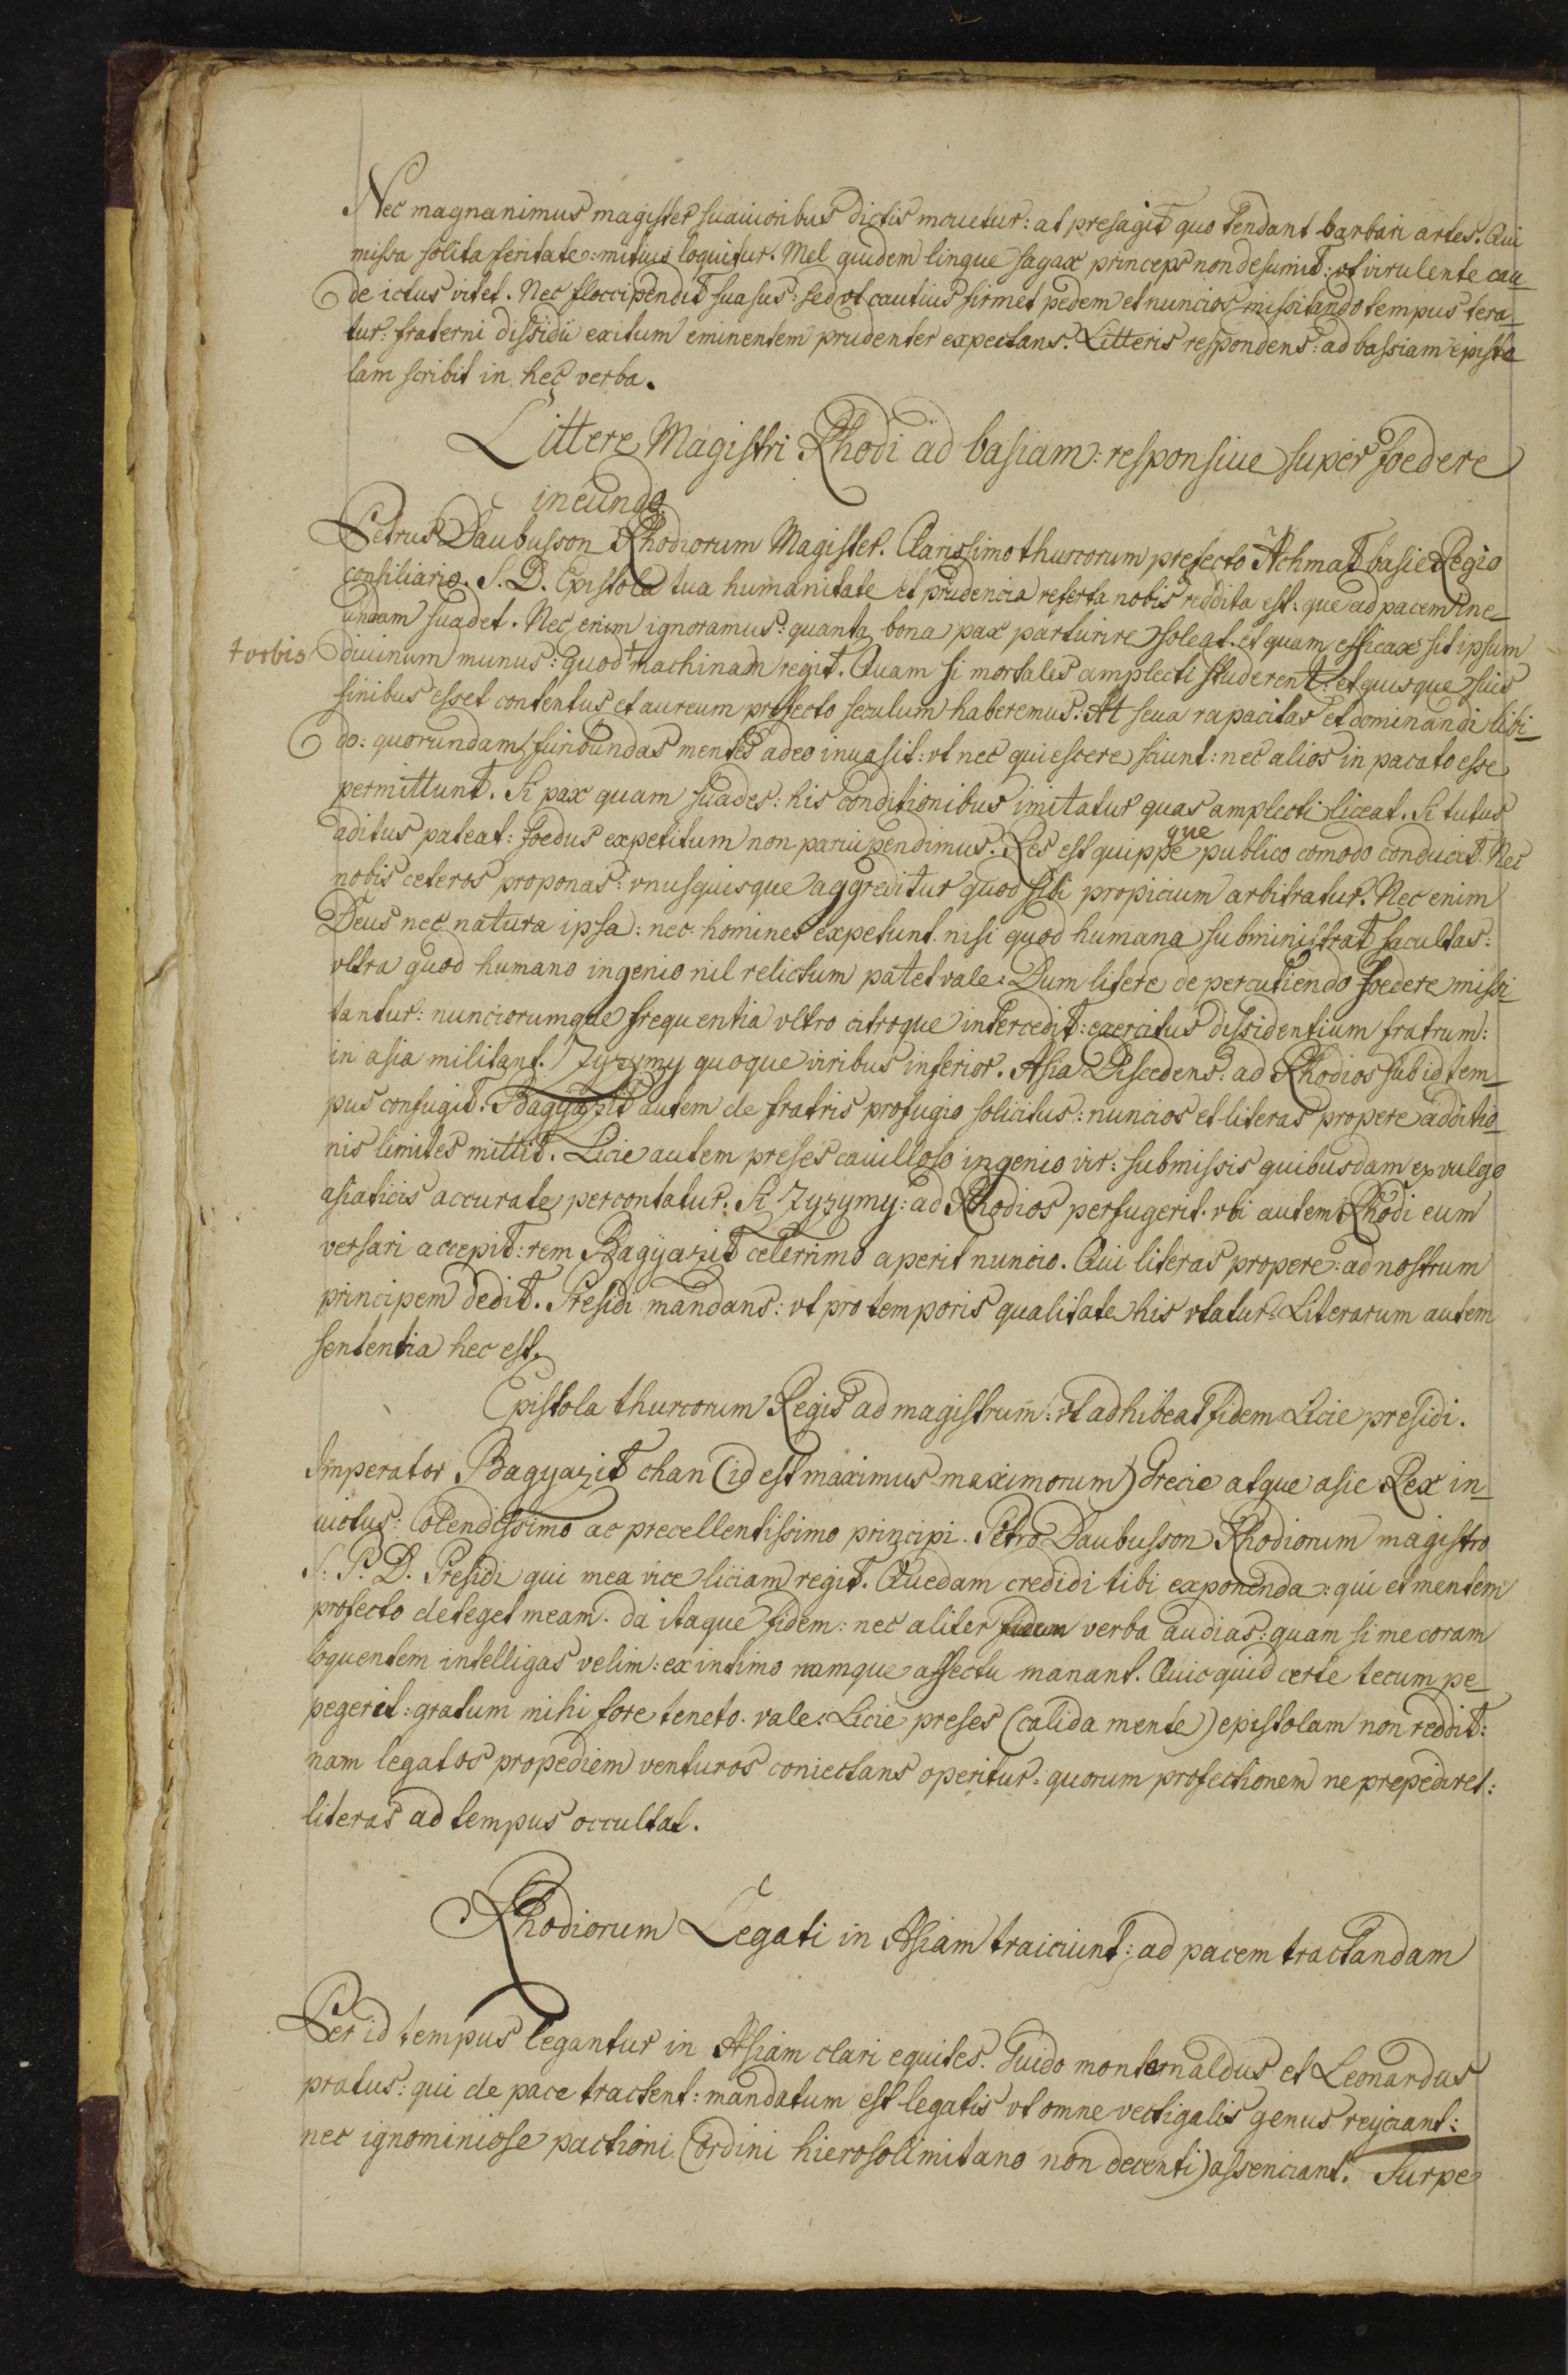 Nec magnanimus magister suauioribus dictis mouetur: at presagit quo tendant barbari artes. Qui
missa solita feritate: mitius loquitur. Mel quidem lingue sagax princeps non desumit: vt virulente cau_
de ictus vitet. Nec floccipendit suasus: sed vt cautius firmet pedem et nuncios missitando tempus tera_
tur: fraterni dissidii exitum eminentem prudenter expectans. Litteris respondens: ad bassiam episto
lam scribit in hec verba.
Littere Magistri Rhodi ad basiam: responsiue super foedere
ineundo.
Petrus Daubusson Rhodiorum Magister. Clarissimo thurcorum prefecto Achmat basie Regio
consiliario. S. D. Epistola tua humanitate et prudencia referta nobis reddita est: que ad pacem ine_
undam suadet. Nec enim ignoramus: quanta bona pax parturire soleat. et quam efficax sit ipsum
+ orbis
diuinum munus: quod + machinam regit. Quam si mortales amplecti studerent: et quisque suis
finibus esset contentus et aureum profecto seculum haberemus: At seua rapacitas et dominandi libi_
do: quorundam furibundas mentes adeo inuasit: vt nec quiescere sciunt: nec alios in pacato esse
permittunt. Si pax quam suades: his conditionibus imitatur quas amplecti liceat. Si tutus
aditus pateat: foedus expetitum non paruipendimus. Res est quippe que publico comodo conducit. Nec
nobis ceteros proponas: vnusquisque aggreditur quod sibi propicium arbitratur. Nec enim
Deus nec natura ipsa: nec homines expetunt nisi quod humana subministrat facultas:
vltra quod humano ingenio nil relictum patet vale. Dum litere de percutiendo foedere missi_
tantur: nunciorumque frequentia vltro citroque intercedit: exercitus dissidentium fratrum:
in asia militant. Zyzymy quoque viribus inferior. Asia Discedens: ad Rhodios sub id tem_
pus confugit. Bagyazit autem de fratris profugio solicitus: nuncios et literas propere ad ditio_
nis limites mittit. Licie autem preses cauilloso ingenio vir: submissis quibusdam ex vulgo
asiaticis accurate percontatur. Si Zyzymy: ad Rhodios perfugerit. vbi autem Rhodi eum
versari accepit: rem Bagyazit celerrimo aperit nuncio. Qui literas propere: ad nostrum
principem dedit. Presidi mandans: vt pro temporis qualitate his vtatur. Literarum autem
sententia hec est.
Epistola thurcorum Regis ad magistrum: vt adhibeat fidem Licie presidi.
Imperator Bagyazit chan (id est maximus maximorum) Grecie atque asie Rex in_
uictus: Colendissimo ac precellentissimo principi. Petro Daubusson Rhodiorum magistro
S. P. D. Presidi qui mea vice liciam regit. Quedam credidi tibi exponenda: qui et mentem
profecto deteget meam. da itaque fidem: nec aliter verba audias: quam si me coram
loquentem intelligas velim: ex intimo namque affectu manant. Quicquid certe tecum pe_
pegerit: gratum mihi fore teneto. vale. Licie preses (calida mente) epistolam non reddit:
nam legatos propediem venturos coniectans operitur: quorum profectionem ne prepediret:
literas ad tempus occultat.
Rhodiorum Legati in Asiam traiciunt: ad pacem tractandam
Per id tempus legantur in Asiam clari equites. Guido montarnaldus et Leonardus
pratus: qui de pace tractent: mandatum est legatis vt omne vectigalis genus reijciant:
nec ignominiose pactioni (ordini hierosolimitano non decenti) assenciant. Turpe